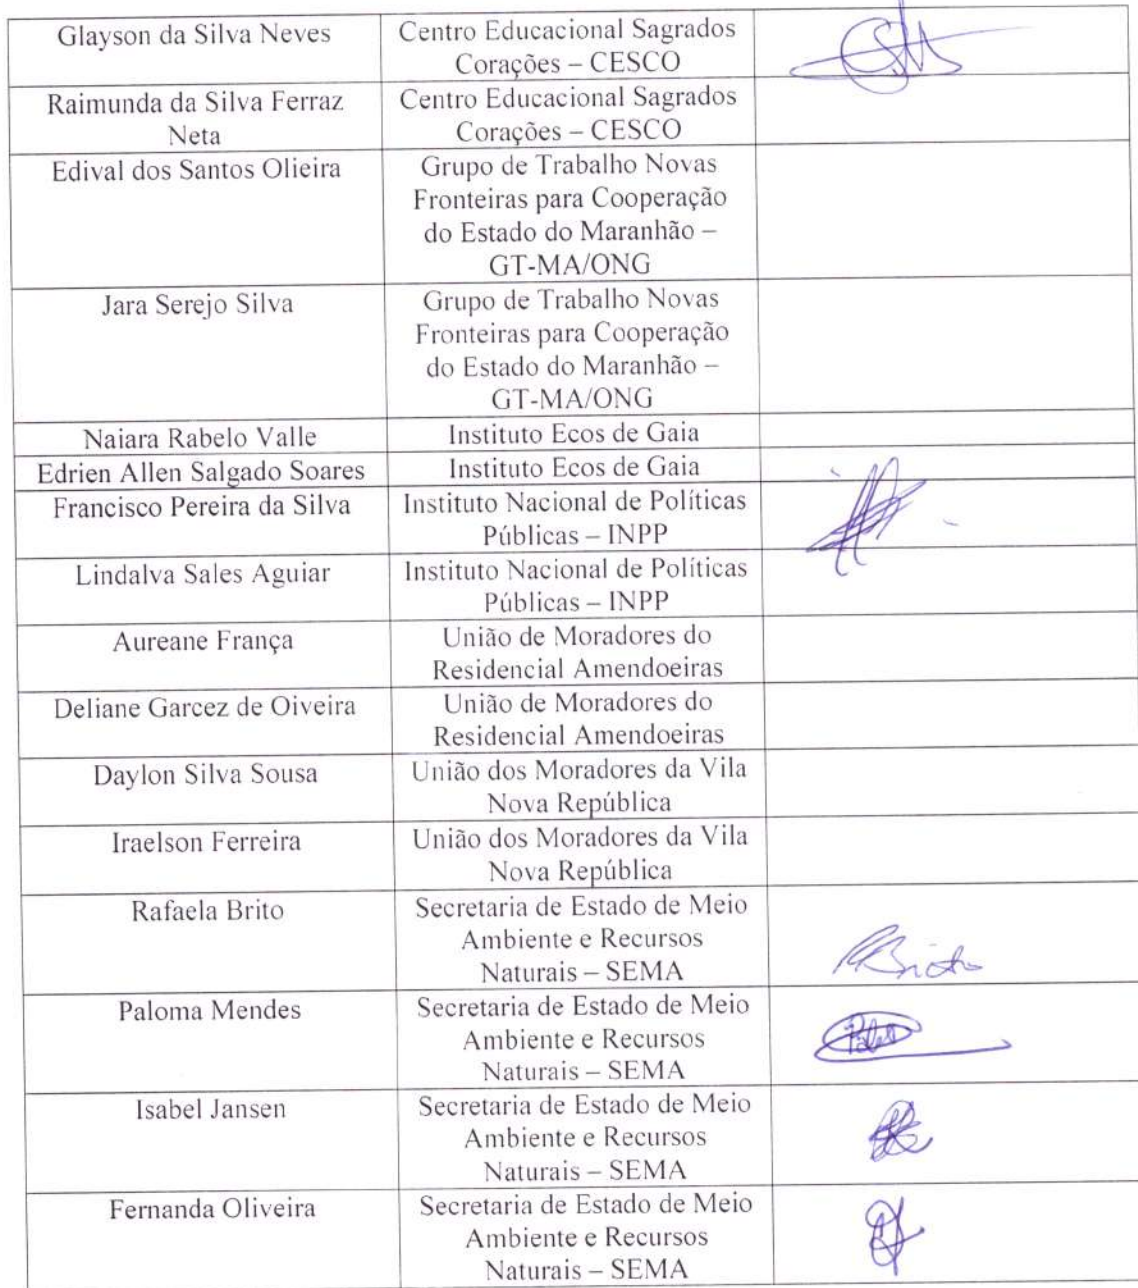 Glayson da Silva Neves
Centro Educacional Sagrados
Corações – CESCO
Raimunda da Silva Ferraz
Neta
Centro Educacional Sagrados
Corações – CESCO
Edival dos Santos Olieira
Grupo de Trabalho Novas
Fronteiras para Cooperação
do Estado do Maranhão –
GT-MA/ONG
Jara Serejo Silva
Grupo de Trabalho Novas
Fronteiras para Cooperação
do Estado do Maranhão –
GT-MA/ONG
Naiara Rabelo Valle
Instituto Ecos de Gaia
Edrien Allen Salgado Soares
Instituto Ecos de Gaia
Francisco Pereira da Silva
Instituto Nacional de Políticas
Públicas – INPP
Lindalva Sales Aguiar
Instituto Nacional de Políticas
Públicas – INPP
Aureane França
União de Moradores do
Residencial Amendoeiras
Deliane Garcez de Oiveira
União de Moradores do
Residencial Amendoeiras
Daylon Silva Sousa
União dos Moradores da Vila
Nova República
Iraelson Ferreira
União dos Moradores da Vila
Nova República
Rafaela Brito
Secretaria de Estado de Meio
Ambiente e Recursos
Naturais – SEMA
Paloma Mendes
Secretaria de Estado de Meio
Ambiente e Recursos
Naturais – SEMA
Isabel Jansen
Secretaria de Estado de Meio
Ambiente e Recursos
Naturais – SEMA
Fernanda Oliveira
Secretaria de Estado de Meio
Ambiente e Recursos
Naturais – SEMA